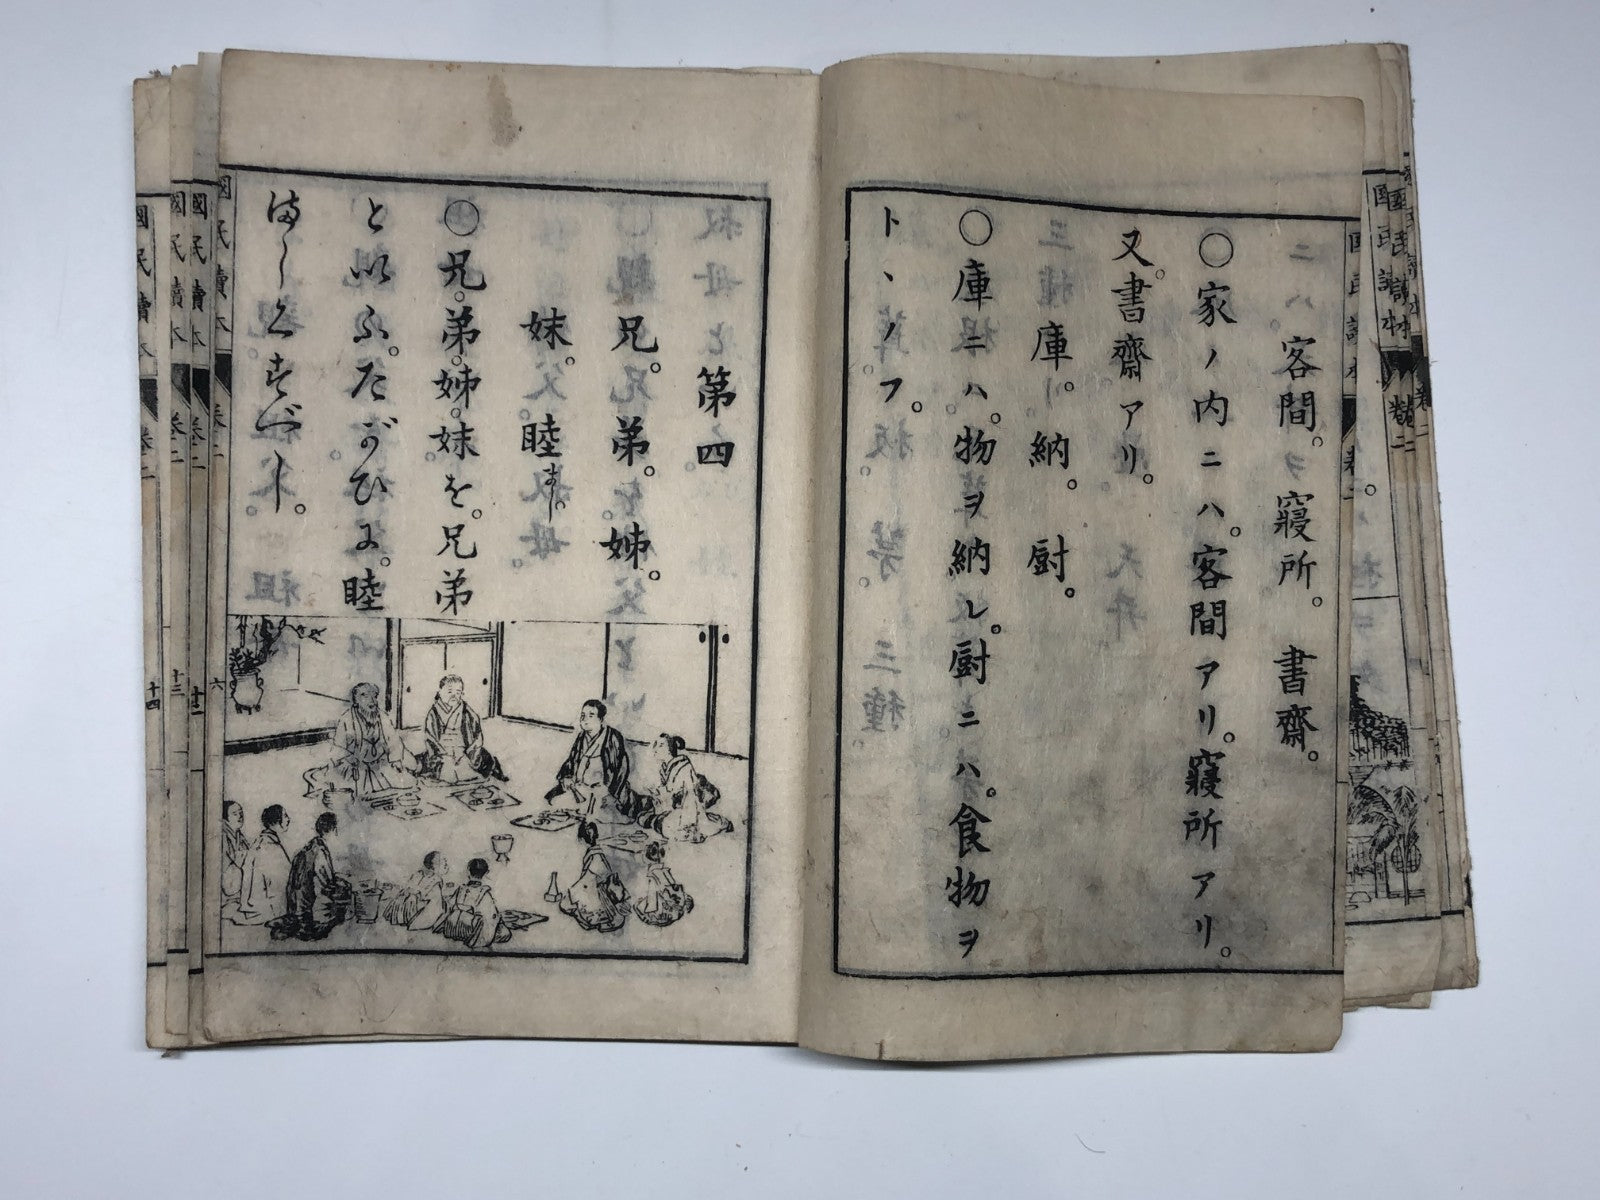 客間。寢所。書齋。
〇家ノ内ニハ。客間アリ。寢所アリ。
又。書齋アリ。
庫。納。厨。
〇庫ニハ。物ヲ納レ。厨ニハ。食物ヲ
トヽノフ。
第四
兄。弟。姊。
妹。睦まし。
〇兄。弟。姊。妹を。兄弟
といふ。たがひに。睦
ましくすべし。
國民讀本
卷二
六
國民讀本
卷二
十二
國民讀本
卷二
十三
國民讀本
卷二
十四